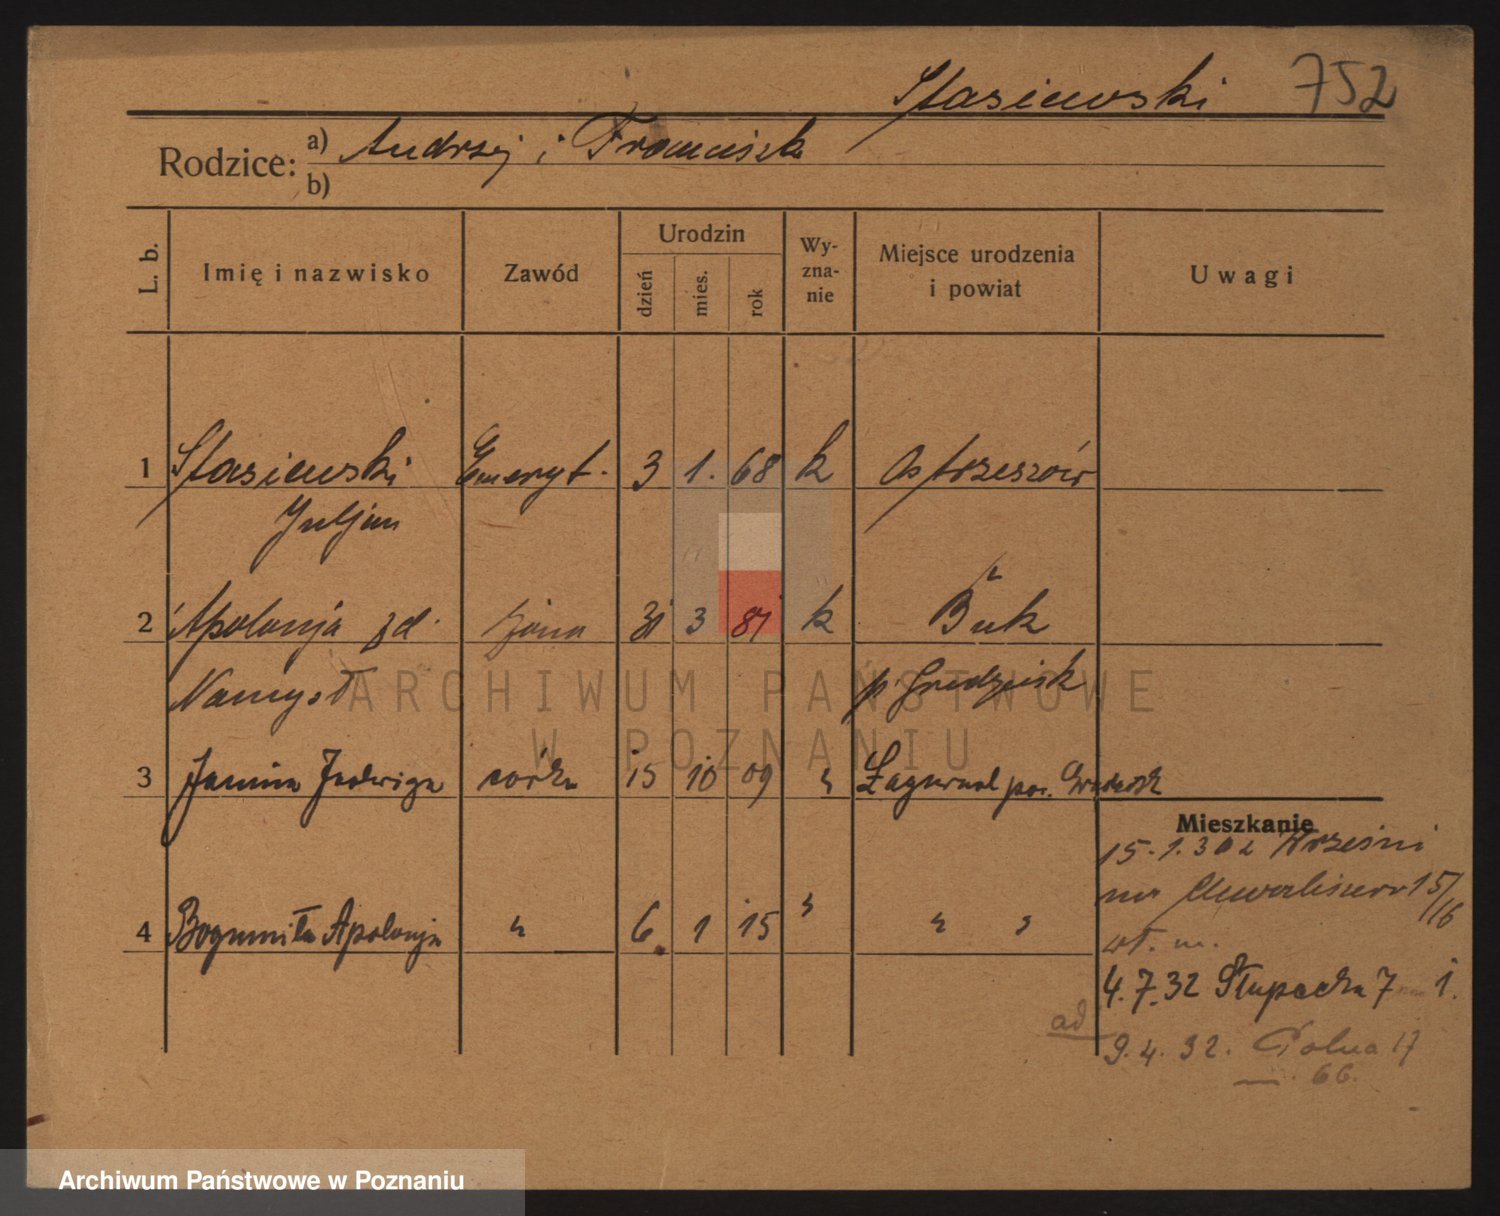 Stasiewski 752
Rodzice: a) Andrzej i Franciszka
b)
L. b. Imię i nazwisko Zawód Urodzin dzień mies. rok Wy-zna-nie Miejsce urodzenia i powiat Uwagi
1 Stasiewski Emeryt. 3 1. 68 k Ostrzeszów
Juljan
2 Apolonja zd. żona 31 3 81 k Buk
Namysł p. Grodzisk
3 Janina Jadwiga córka 15 10 09 " pow. Grodzisk
Mieszkanie
15.1.32 z Wrześni
na 15/16
4 Bogumiła Apolonja " 6 1 15 " " "
wł. m.
4.7.32 7 1.
ad 9.4.32. Polna 17
66.
ARCHIWUM PAŃSTWOWE
W POZNANIU
Archiwum Państwowe w Poznaniu